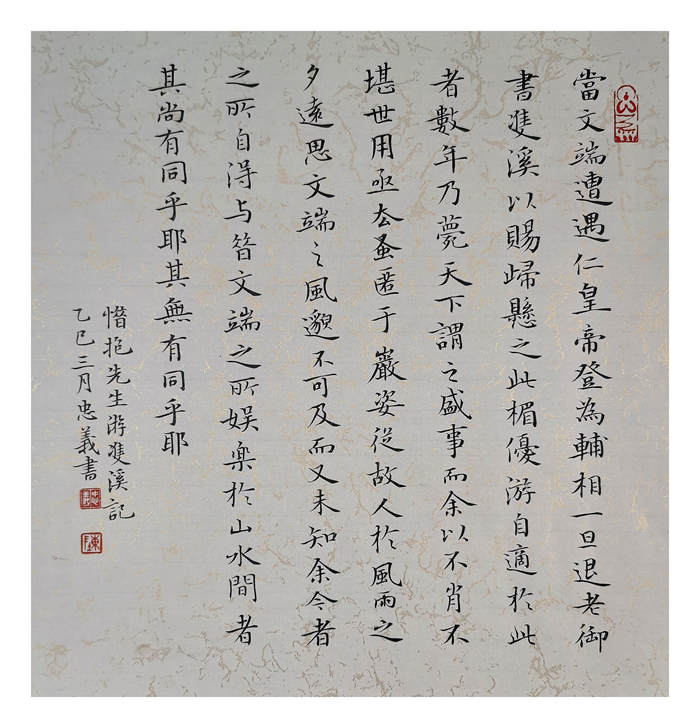 當文端遭遇仁皇帝登為輔相一旦退老御
書雙溪以賜歸懸之此楣優游自適於此
者數年乃薨天下謂之盛事而余以不肖不
堪世用亟去蚤匿于巖姿從故人於風雨之
夕遠思文端之風邈不可及而又未知余今者
之所自得与昝文端之所娛樂於山水間者
其尚有同乎耶其無有同乎耶
惜抱先生游雙溪記
乙巳三月忠義書